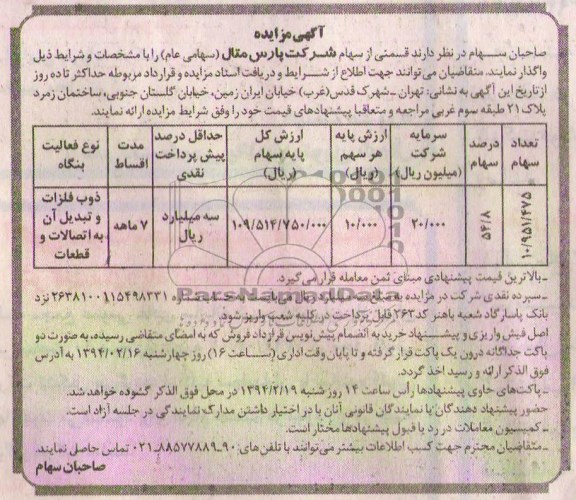 آگهی مزایده
صاحبان سهام در نظر دارند قسمتی از سهام شرکت پارس متال (سهامی عام) را با مشخصات و شرایط ذیل
واگذار نمایند. متقاضیان می توانند جهت اطلاع از شرایط و دریافت اسناد مزایده و قرارداد مربوطه حداکثر تا ده روز
از تاریخ این آگهی به نشانی: تهران _ شهرک قدس (غرب) خیابان ایران زمین، خیابان گلستان جنوبی، ساختمان زمرد
پلاک ۲۱ طبقه سوم غربی مراجعه و متعاقبا پیشنهادهای قیمت خود را وفق شرایط مزایده ارائه نمایند.
تعداد سهام | درصد سهام | سرمایه شرکت (میلیون ریال) | ارزش پایه هر سهم (ریال) | ارزش کل پایه سهام (ریال) | حداقل درصد پیش پرداخت نقدی | مدت اقساط | نوع فعالیت بنگاه
۱۰/۹۵۱/۴۷۵ | ۵۴/۸ | ۲۰/۰۰۰ | ۱۰/۰۰۰ | ۱۰۹/۵۱۴/۷۵۰/۰۰۰ | سه میلیارد ریال | ۷ ماهه | ذوب فلزات و تبدیل آن به اتصالات و قطعات
_ بالاترین قیمت پیشنهادی مبنای ثمن معامله قرار می گیرد.
_ سپرده نقدی شرکت در مزایده به ۲۶۳۸۱۰۰۱۱۵۴۹۸۳۳۱ نزد
بانک پاسارگاد شعبه باهنر کد ۲۶۳ قابل پرداخت در کلیه شعب واریز شود.
اصل فیش واریزی و پیشنهاد خرید به انضمام پیش نویس قرارداد فروش که به امضای متقاضی رسیده، به صورت دو
پاکت جداگانه درون یک پاکت قرار گرفته و تا پایان وقت اداری (ساعت ۱۶) روز چهارشنبه ۱۳۹۴/۰۲/۱۶ به آدرس
فوق الذکر ارائه و رسید اخذ گردد.
_ پاکت های حاوی پیشنهادها رأس ساعت ۱۴ روز شنبه ۱۳۹۴/۲/۱۹ در محل فوق الذکر گشوده خواهد شد.
حضور پیشنهاد دهندگان یا نمایندگان قانونی آنان با در اختیار داشتن مدارک نمایندگی در جلسه آزاد است.
_ کمیسیون معاملات در رد یا قبول پیشنهادها مختار است.
_ متقاضیان محترم جهت کسب اطلاعات بیشتر می توانند با تلفن های: ۹۰_۸۸۵۷۷۸۸۹_۰۲۱ تماس حاصل نمایند.
صاحبان سهام
ParsNamadData